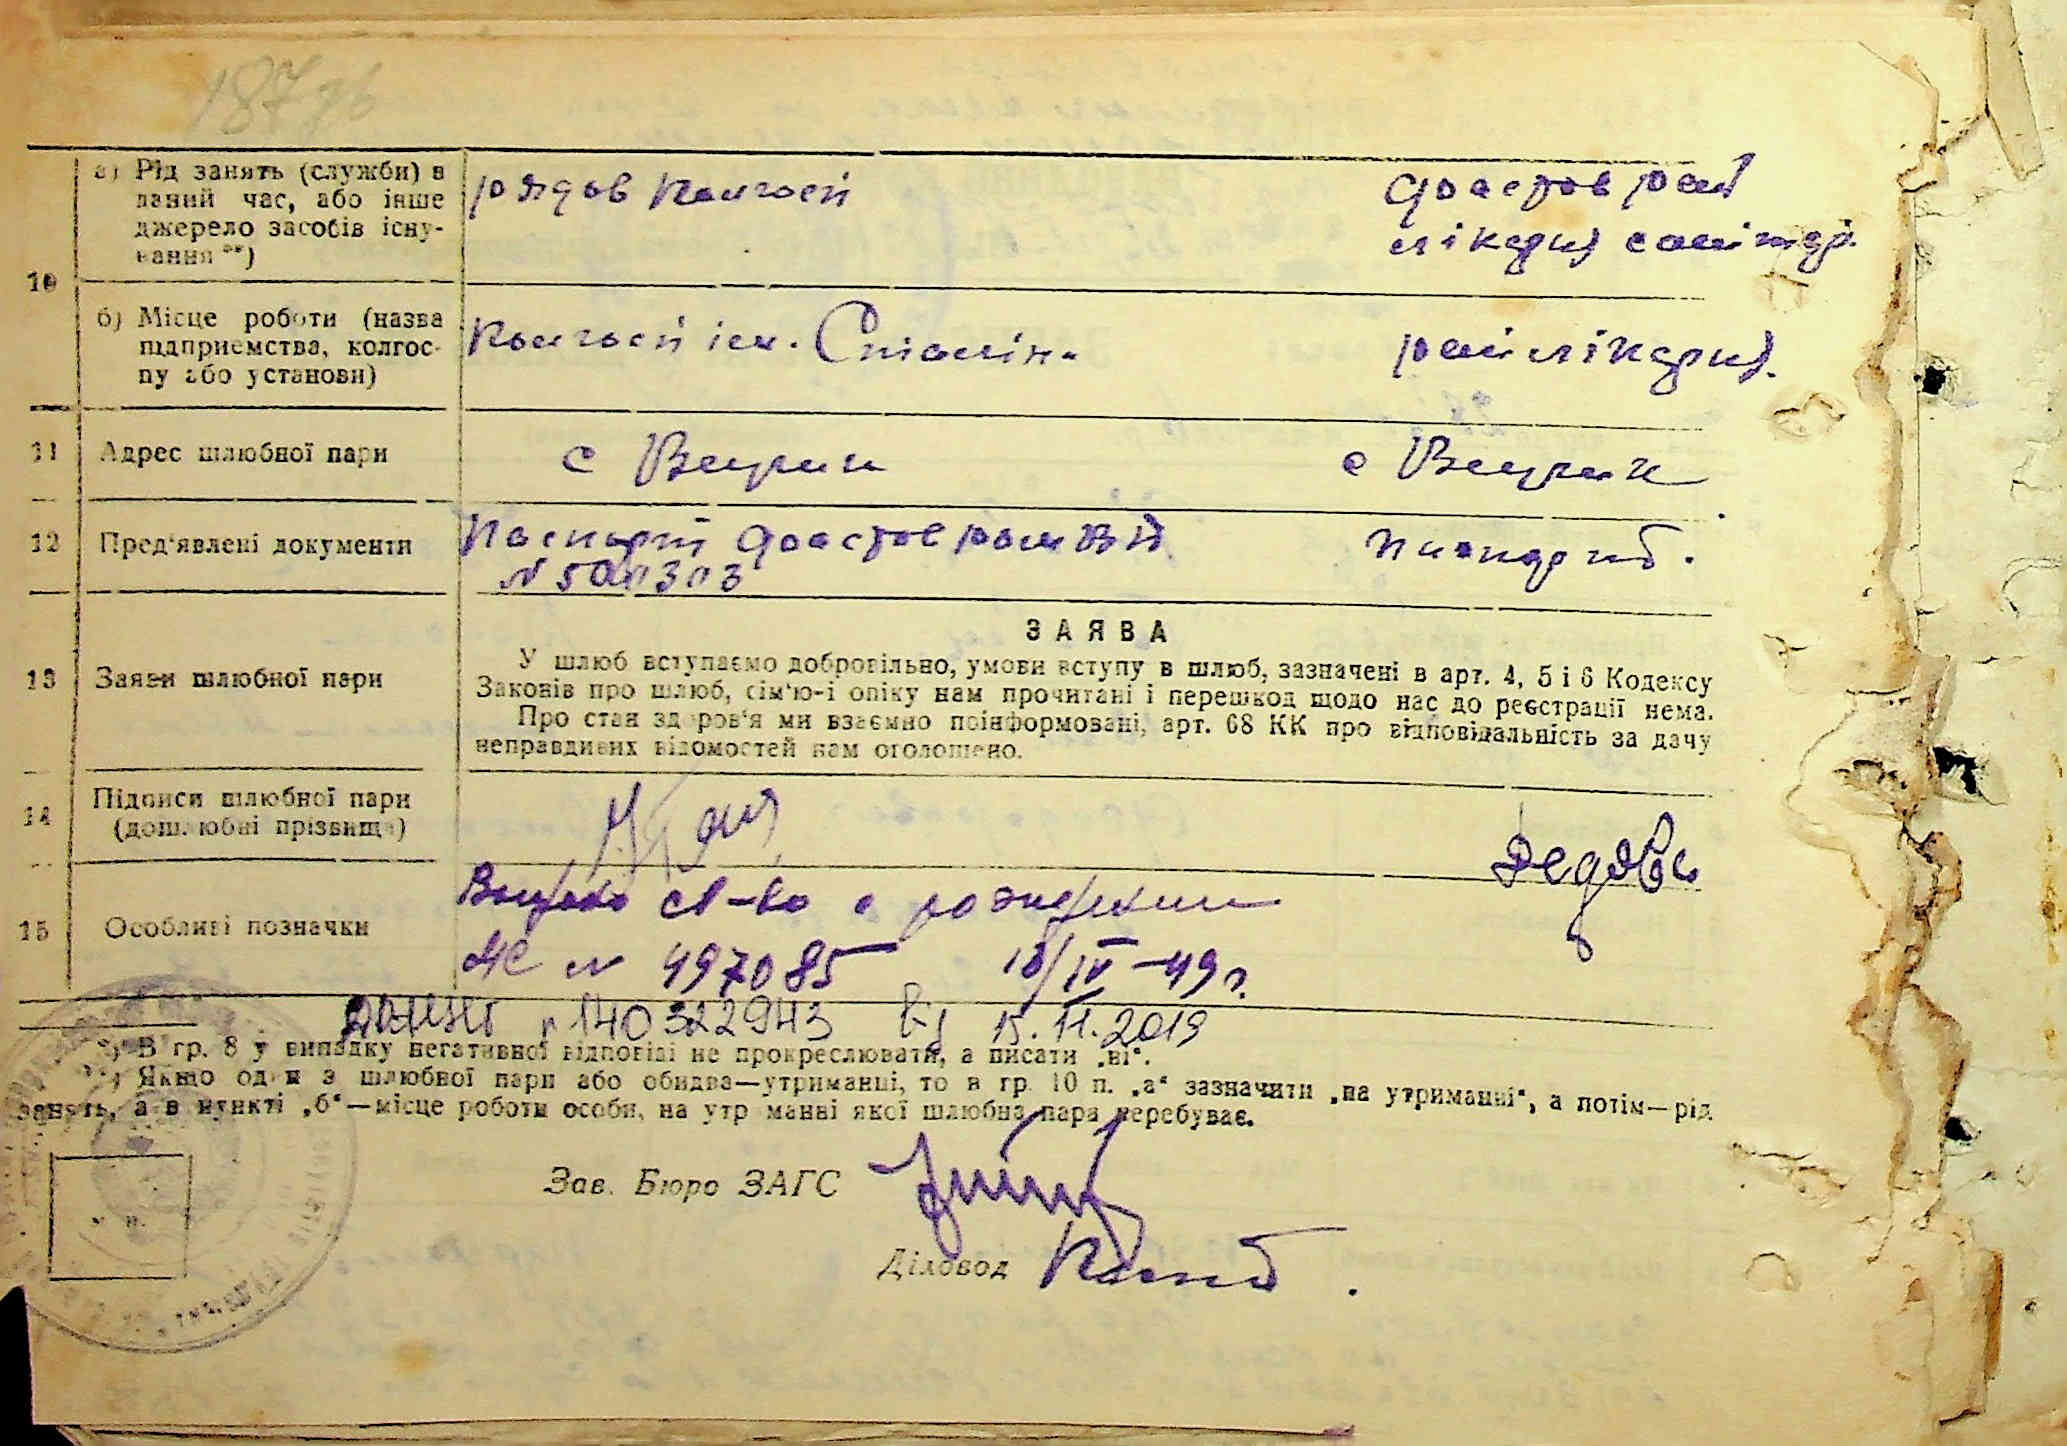 187 зв
10
а) Рід занять (служби) в
даний час, або інше
джерело засобів існу-
вання **)
рядов колгосп
Фастов рай
лікарня санітар.
б) Місце роботи (назва
підприємства, колгос-
пу або установи)
колгосп ім. Сталіна
райлікарня.
11 Адрес шлюбної пари
с
с
12 Пред'явлені документи
Паспорт Фастов рай
№ 500303
13 Заяви шлюбної пари
ЗАЯВА
У шлюб вступаємо добровільно, умови вступу в шлюб, зазначені в арт. 4, 5 і 6 Кодексу
Законів про шлюб, сім'ю і опіку нам прочитані і перешкод щодо нас до реєстрації нема.
Про стан здоров'я ми взаємно поінформовані, арт. 68 КК про відповідальність за дачу
неправдивих відомостей нам оголошено.
14 Підписи шлюбної пари
(дошлюбні прізвища)
15 Особливі позначки
св-во о рождении
№ 497085 18/IV-49 г.
140322943 від 15.11.2019
*) В гр. 8 у випадку негативної відповіді не прокреслювати, а писати „ні“.
**) Якщо один з шлюбної пари або обидва—утриманці, то в гр. 10 п. „а“ зазначити „на утриманні“, а потім—рід
занять, а в пункті „б“—місце роботи особи, на утриманні якої шлюбна пара перебуває.
Зав. Бюро ЗАГС
Діловод